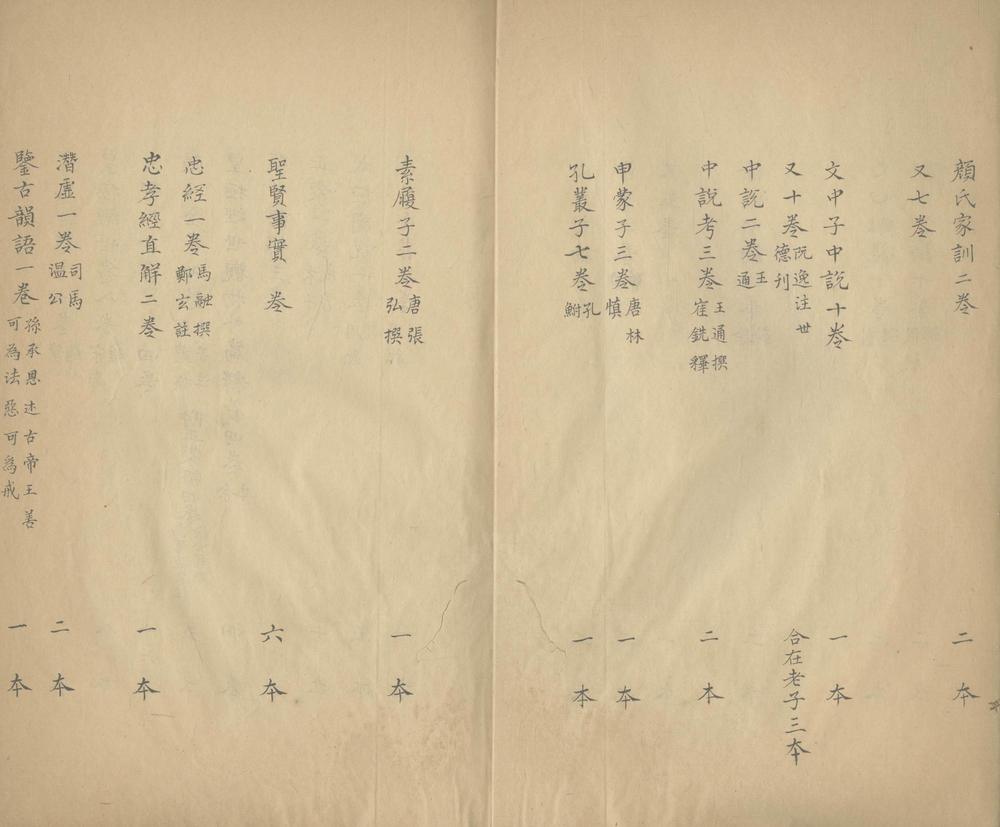 顏氏家訓二卷 二本
又七卷
文中子中說十卷 一本
又十卷 阮逸注 世德刊 合在老子三本
中說二卷 王通
中說考三卷 王通撰 崔銑釋 二本
申蒙子三卷 唐林慎 一本
孔叢子七卷 孔鮒 一本
素履子二卷 唐張弘撰 一本
聖賢事實三卷 六本
忠經一卷 馬融撰 鄭玄註
忠孝經直解二卷 一本
潛虛一卷 司馬溫公 二本
鑒古韻語一卷 孫承恩述古帝王善可為法惡可為戒 一本